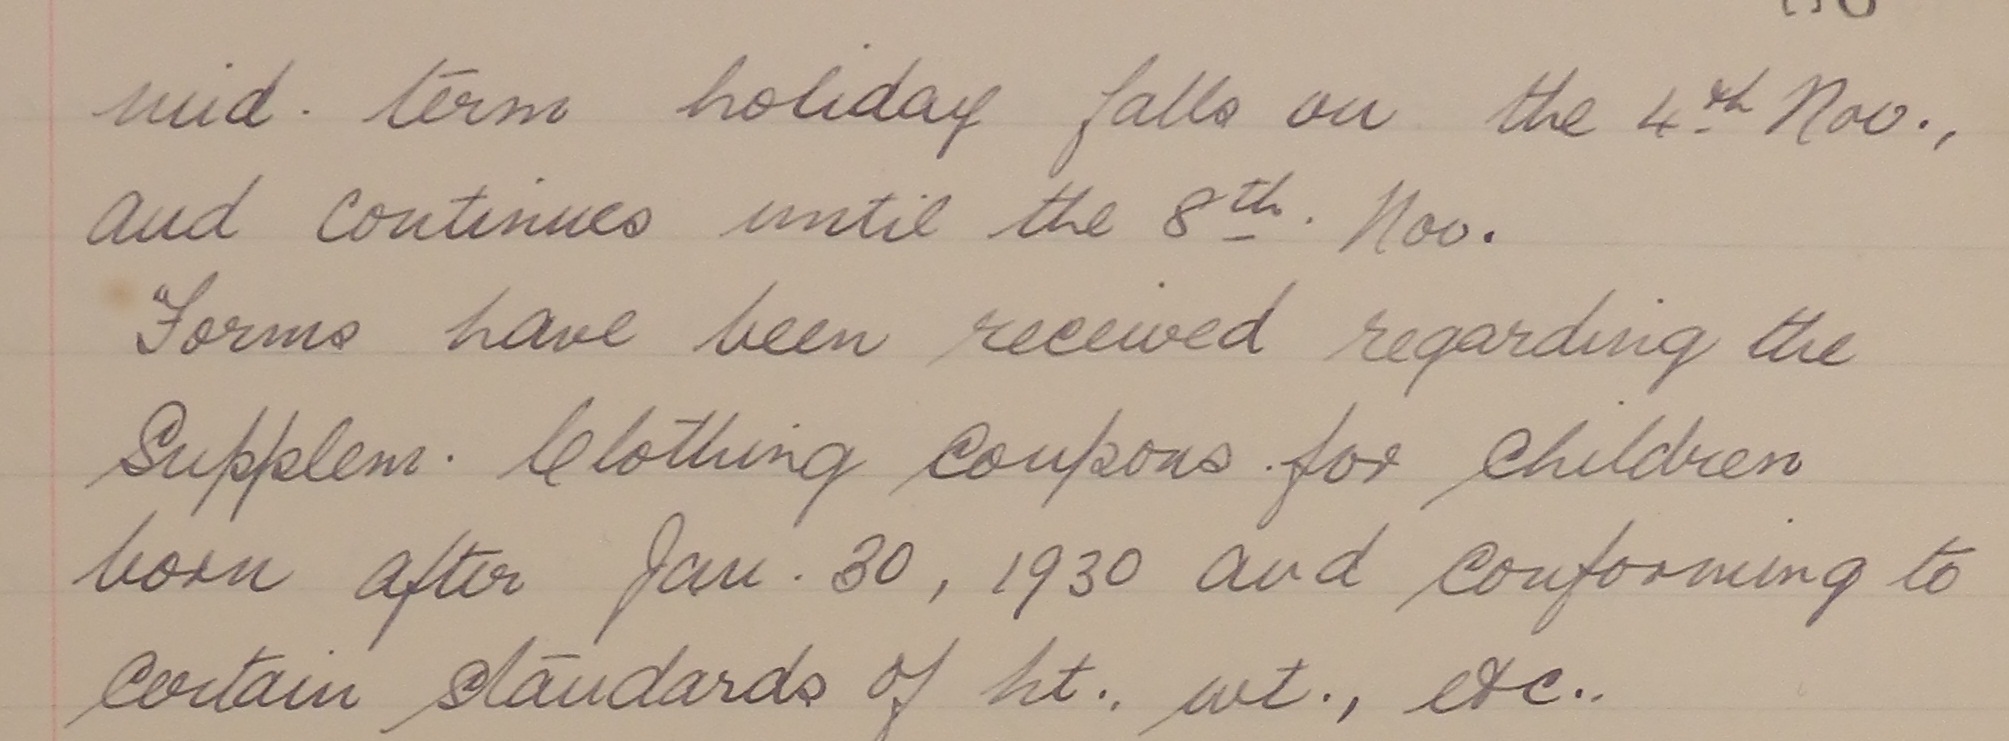 mid. term holiday falls on the 4th Nov.,
and continues until the 8th. Nov.
Forms have been received regarding the
Supplem. Clothing Coupons for Children
born after Jan. 30, 1930 and conforming to
certain standards of ht., wt., etc..